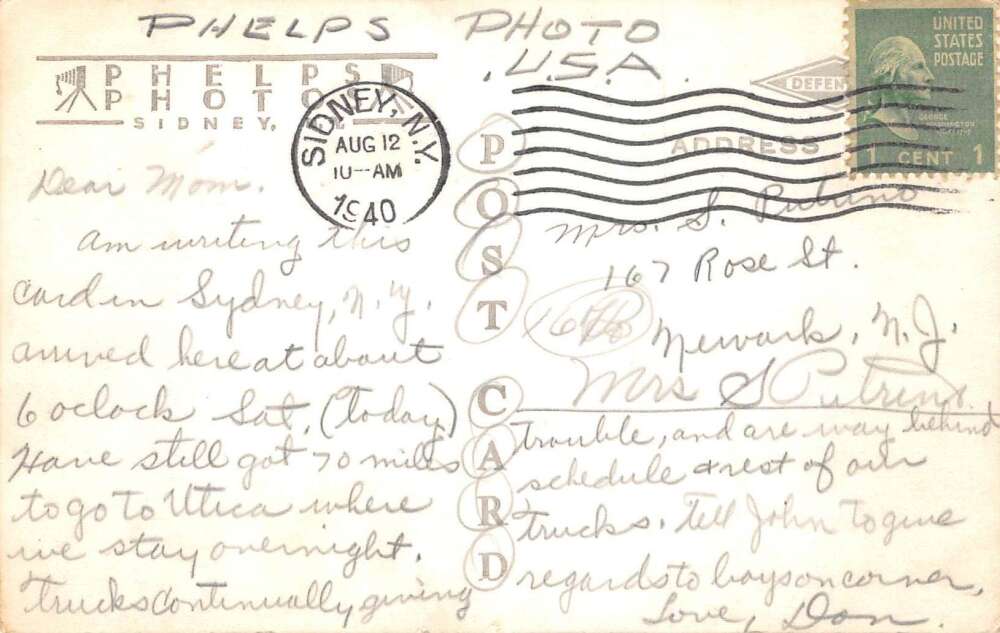 PHELPS PHOTO
U.S.A.
PHELPS
PHOTO
SIDNEY,
SIDNEY, N.Y.
AUG 12
10-AM
1940
DEFEN
UNITED
STATES
POSTAGE
GEORGE
WASHINGTON
1 CENT 1
POST CARD
ADDRESS
Dear Mom.
Am writing this
card in Sydney, N.Y.
arrived here at about
6 oclock Sat, (today)
Have still got 70 miles
to go to Utica where
we stay overnight.
Trucks continually giving
trouble, and are way behind
schedule & rest of our
trucks. Tell John to give
regards to boys on corner,
Love, Don.
Mrs. S. Putrino
167 Rose St.
Newark, N.J.
Mrs S Putrino